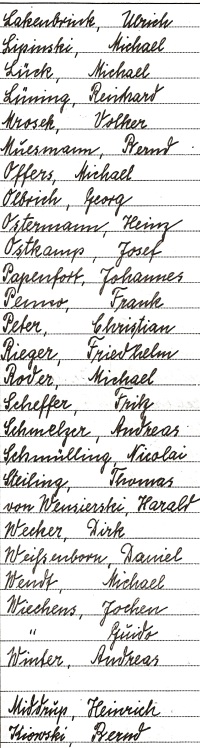 Lakenbrink, Ulrich
Lipinski, Michael
Lück, Michael
Lüning, Reinhard
Mrosek, Volker
Muesmann, Bernd
Offers, Michael
Olbrich, Georg
Ostermann, Heinz
Ostkamp, Josef
Papenfort, Johannes
Penno, Frank
Peter, Christian
Rieger, Friedhelm
Roder, Michael
Scheffer, Fritz
Schmelzer, Andreas
Schmülling, Nicolai
Steiling, Thomas
von Wensierski, Harald
Wecker, Dirk
Weißenborn, Daniel
Wendt, Michael
Wiechens, Jochen
" Guido
Winter, Andreas
Middrup, Heinrich
Kiowski, Bernd